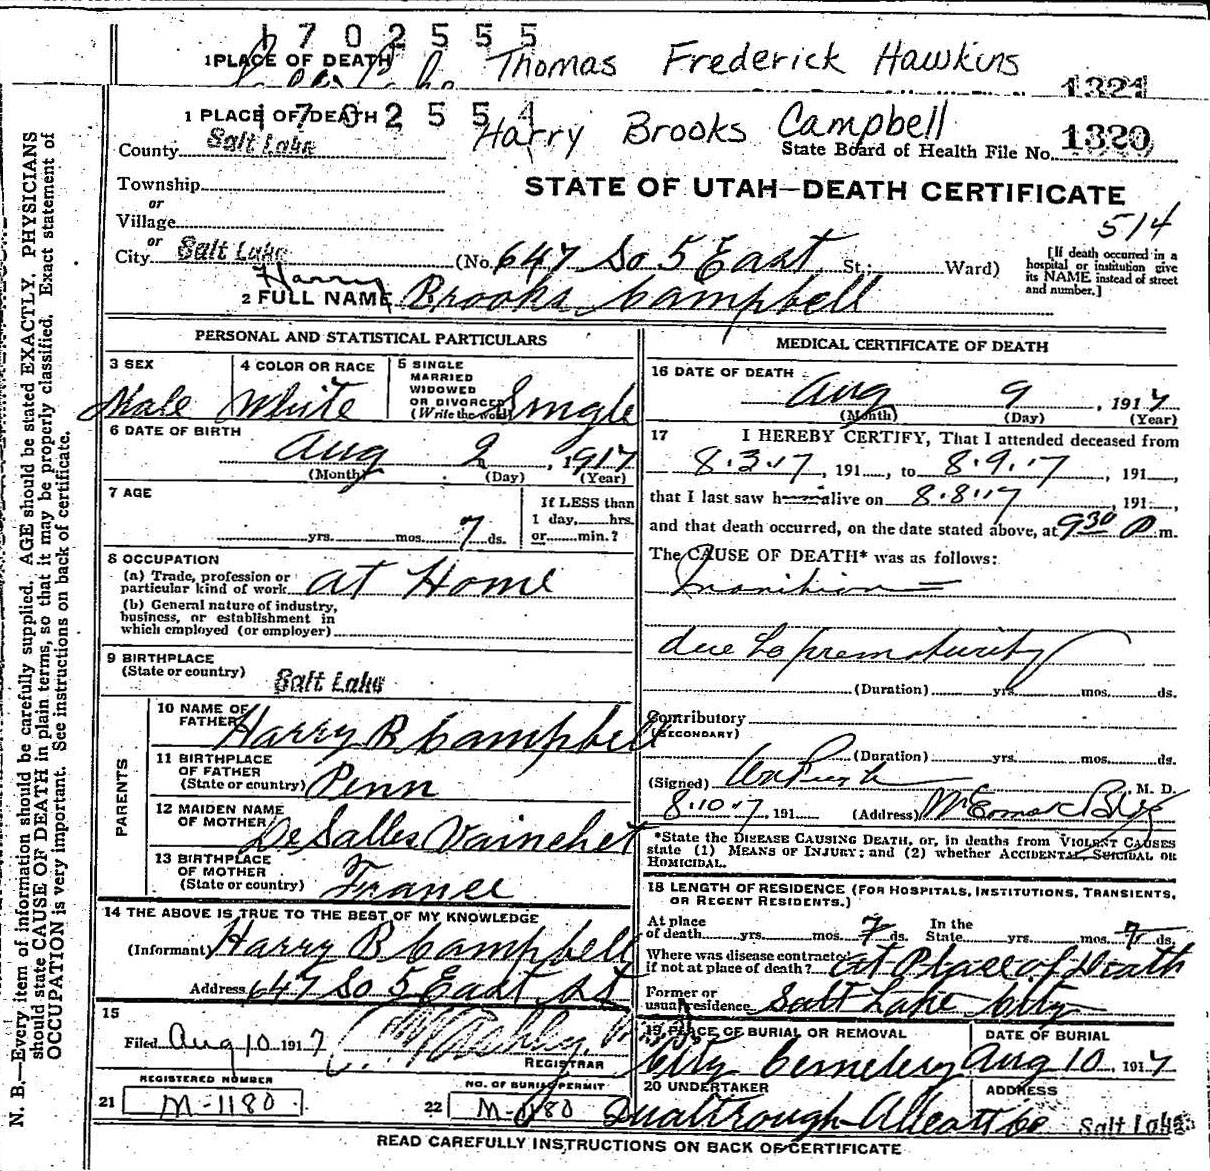 1702555
1 PLACE OF DEATH Thomas Frederick Hawkins 1321
1702554
1 PLACE OF DEATH Harry Brooks Campbell
County Salt Lake State Board of Health File No. 1320
Township
STATE OF UTAH—DEATH CERTIFICATE
or
Village
514
or
City Salt Lake (No. 647 So 5 East St.; Ward)
[If death occurred in a hospital or institution give its NAME instead of street and number.]
2 FULL NAME Harry Brooks Campbell
PERSONAL AND STATISTICAL PARTICULARS
3 SEX
Male
4 COLOR OR RACE
White
5 SINGLE
MARRIED
WIDOWED
OR DIVORCED
(Write the word) Single
6 DATE OF BIRTH
Aug 2, 1917
(Month) (Day) (Year)
7 AGE
yrs. mos. 7 ds.
If LESS than
1 day, hrs.
or min.?
8 OCCUPATION
(a) Trade, profession or
particular kind of work at Home
(b) General nature of industry,
business, or establishment in
which employed (or employer)
9 BIRTHPLACE
(State or country) Salt Lake
PARENTS
10 NAME OF
FATHER Harry B Campbell
11 BIRTHPLACE
OF FATHER
(State or country) Penn
12 MAIDEN NAME
OF MOTHER DeSalles Vainchet
13 BIRTHPLACE
OF MOTHER
(State or country) France
14 THE ABOVE IS TRUE TO THE BEST OF MY KNOWLEDGE
(Informant) Harry B Campbell
Address 647 So 5 East St
15
Filed Aug 10 1917
REGISTRAR
REGISTERED NUMBER
21 M-1180
NO. OF BURIAL PERMIT
22 M-1180
MEDICAL CERTIFICATE OF DEATH
16 DATE OF DEATH
Aug 9, 1917
(Month) (Day) (Year)
17 I HEREBY CERTIFY, That I attended deceased from
8.3.17, 191, to 8.9.17, 191,
that I last saw h alive on 8.8.17, 191,
and that death occurred, on the date stated above, at 9 30 P m.
The CAUSE OF DEATH* was as follows:
Inanition
due to prematurity
(Duration) yrs. mos. ds.
Contributory
(SECONDARY)
(Duration) yrs. mos. ds.
(Signed) M. D.
8.10.17, 191 (Address)
*State the DISEASE CAUSING DEATH, or, in deaths from VIOLENT CAUSES
state (1) MEANS OF INJURY; and (2) whether ACCIDENTAL, SUICIDAL OR
HOMICIDAL.
18 LENGTH OF RESIDENCE (FOR HOSPITALS, INSTITUTIONS, TRANSIENTS,
OR RECENT RESIDENTS.)
At place
of death yrs. mos. 7 ds.
In the
State yrs. mos. 7 ds.
Where was disease contracted
if not at place of death? at Place of Death
Former or
usual residence Salt Lake City
19 PLACE OF BURIAL OR REMOVAL
City Cemetery
DATE OF BURIAL
Aug 10 1917
20 UNDERTAKER
ADDRESS
Salt Lake
READ CAREFULLY INSTRUCTIONS ON BACK OF CERTIFICATE
N. B.—Every item of information should be carefully supplied. AGE should be stated EXACTLY. PHYSICIANS
should state CAUSE OF DEATH in plain terms, so that it may be properly classified. Exact statement of
OCCUPATION is very important. See instructions on back of certificate.